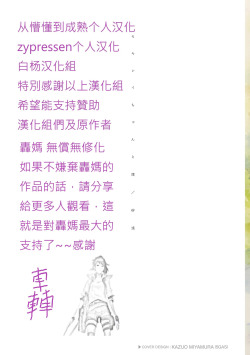 从懵懂到成熟个人汉化
zypressen个人汉化
白杨汉化組
特別感謝以上漢化組
希望能支持贊助
漢化組們及原作者
轟媽 無償無修化
如果不嫌棄轟媽的
作品的話，請分享
給更多人觀看，這
就是對轟媽最大的
支持了~~感謝
COVER DESIGN / KAZUO MIYAMURA